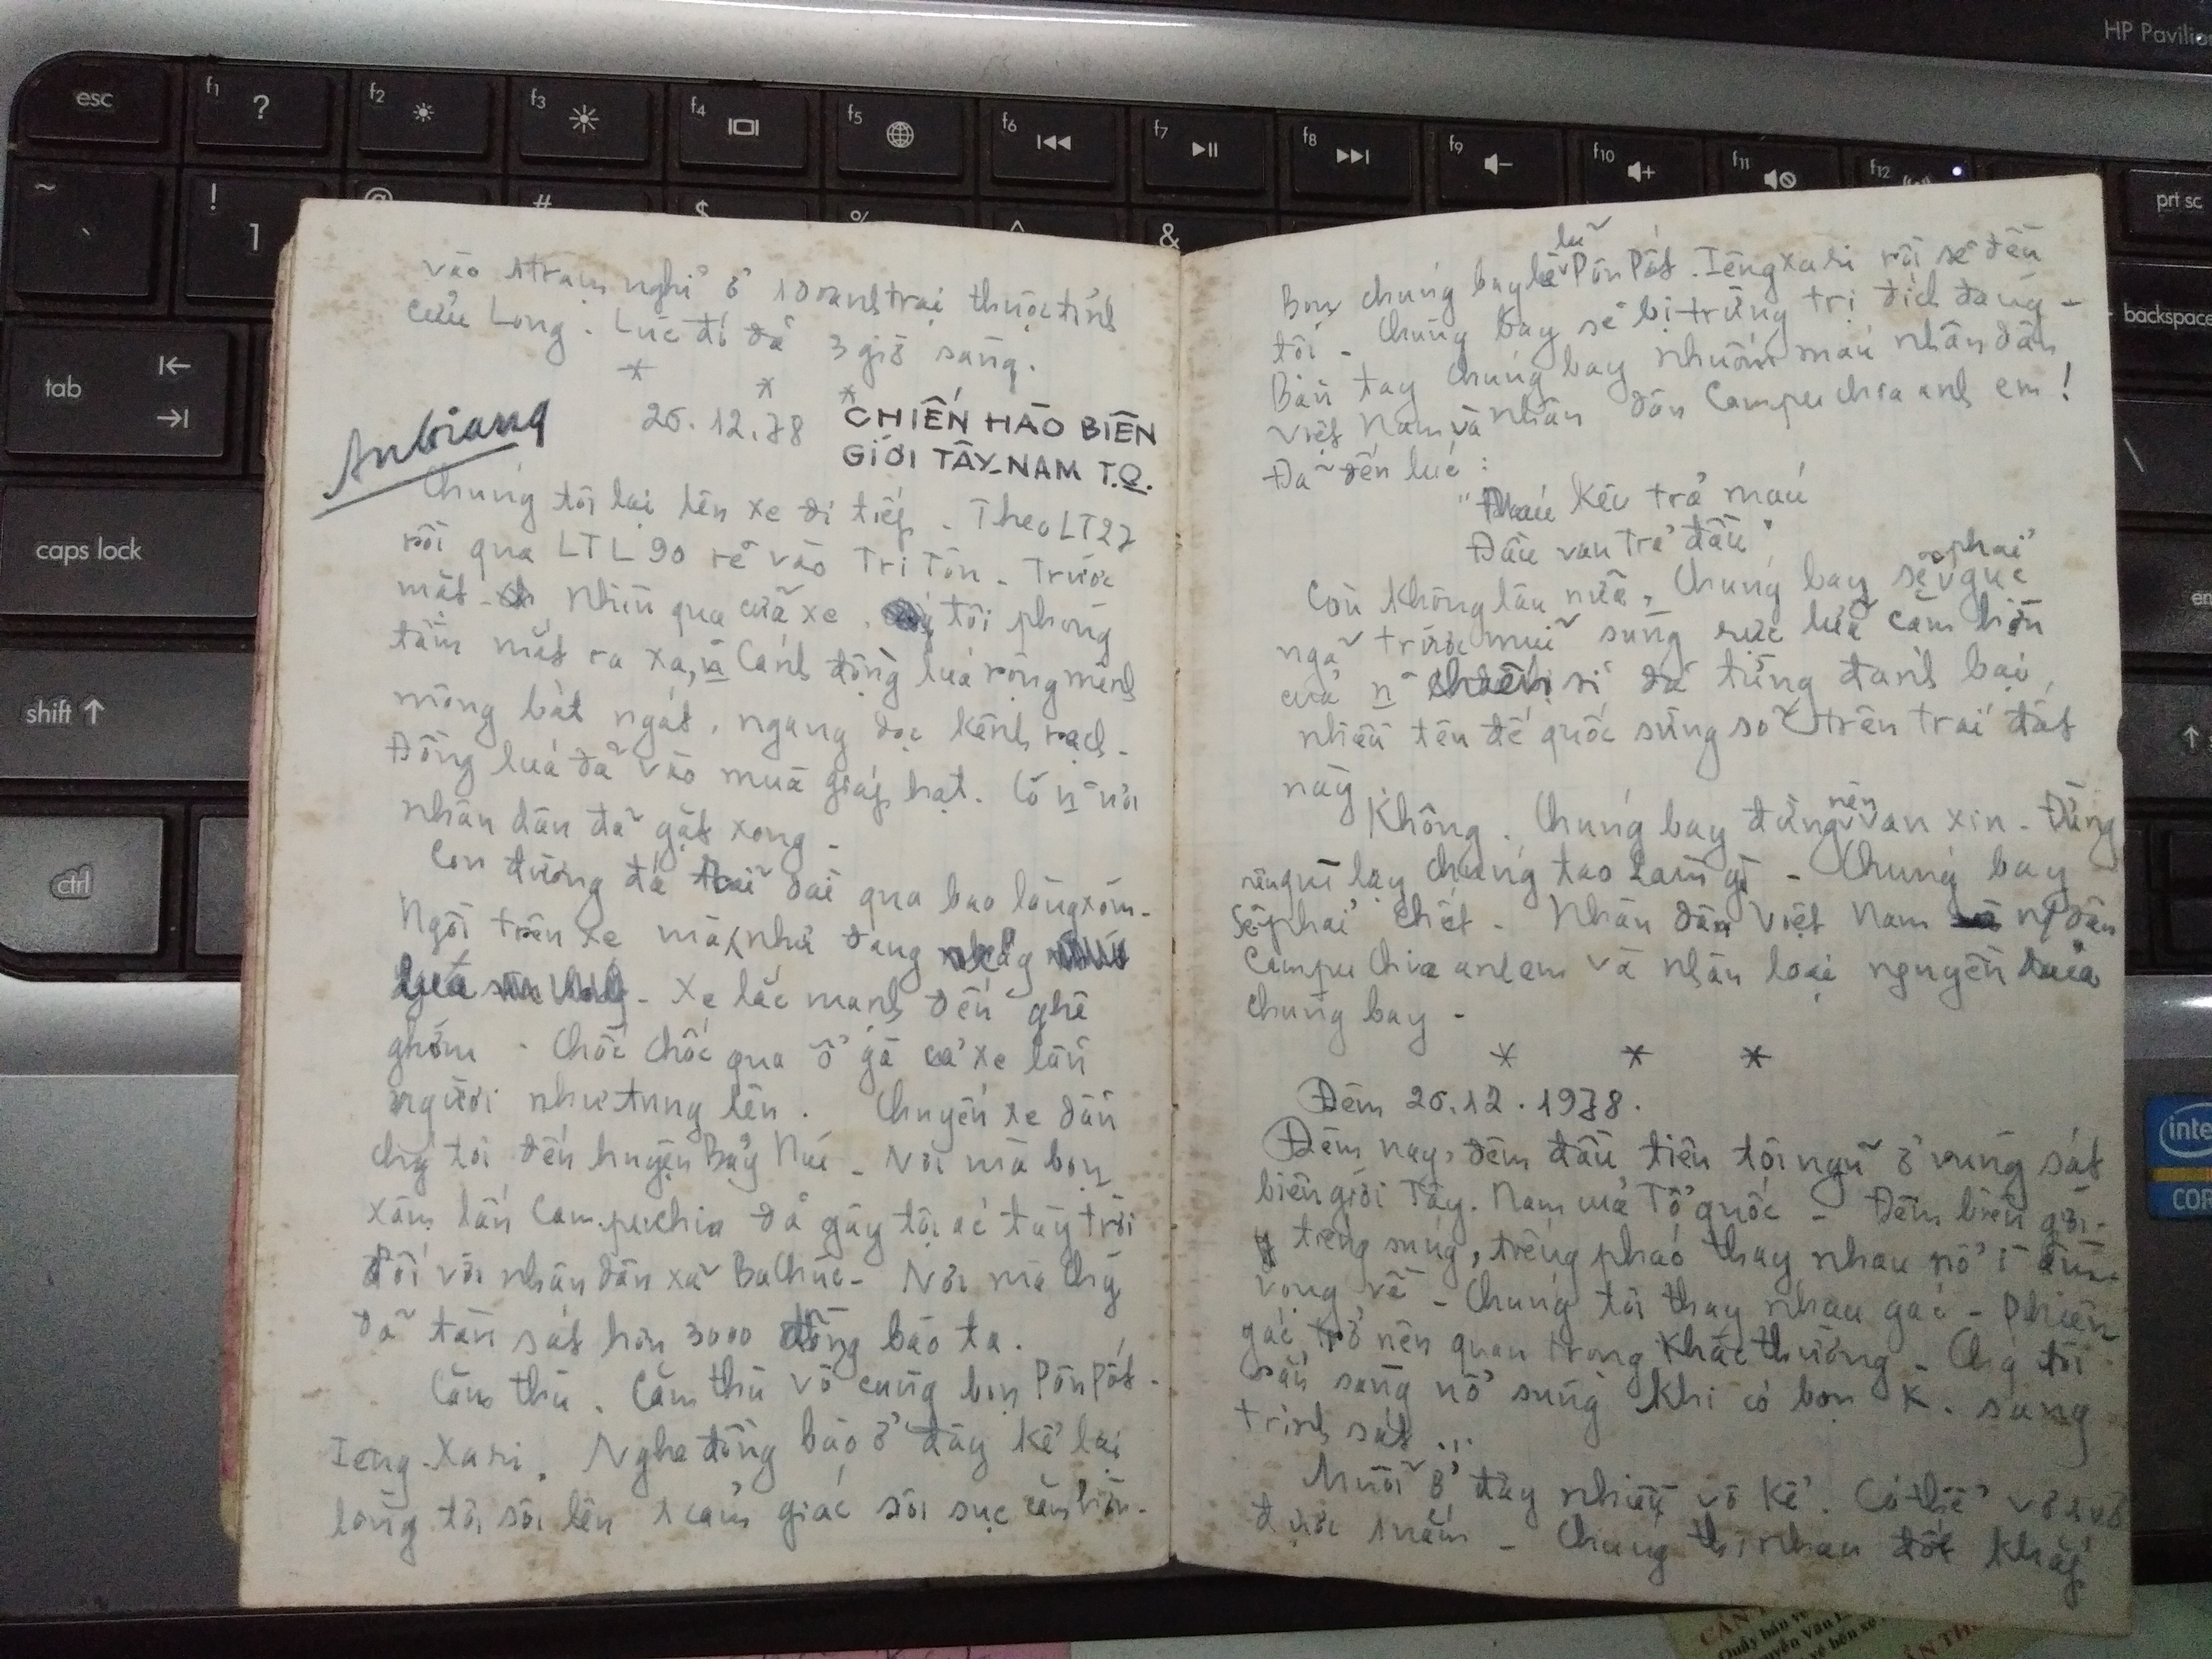 HP Pavilio
esc
f1 ?
f2
f3
f4
f5
f6
f7
f8
f9
f10
f11
f12
prt sc
~ `
! 1
@
#
$
%
^
&
backspace
tab
caps lock
shift
ctrl
vào 1 trạm nghỉ ở 1 doanh trại thuộc tỉnh
Cửu Long. Lúc đó đã 3 giờ sáng.
* * *
An Giang
26.12.78
CHIẾN HÀO BIÊN
GIỚI TÂY-NAM T.Q.
Chúng tôi lại lên xe đi tiếp. Theo LT27
rồi qua LTL 90 rẽ vào Tri Tôn. Trước
mắt. Nhìn qua cửa xe, tôi phóng
tầm mắt ra xa, là Cánh đồng lúa rộng mênh
mông bát ngát, ngang dọc kênh rạch.
Đồng lúa đã vào mùa giáp hạt. Có n~ nơi
nhân dân đã gặt xong.
Con đường đá dài qua bao làng xóm.
Ngồi trên xe mà như đang
Xe lắc mạnh đến ghê
ghớm. Chốc chốc qua ổ gà cả xe lẫn
người như tung lên. Chuyến xe dẫn
chg tôi đến huyện Bảy Núi. Nơi mà bọn
xâm lấn Campuchia đã gây tội ác tày trời
đối với nhân dân xã Ba Chúc. Nơi mà chg
đã tàn sát hơn 3000 đồng bào ta.
Căm thù. Căm thù vô cùng bọn Pôn Pốt.
Iêng-Xari. Nghe đồng bào ở đây kể lại
lòng tôi sôi lên 1 cảm giác sôi sục căm hờn.
Bọn chúng bay lũ Pôn Pốt. Iêng xari rồi sẽ đền
tội. Chúng bay sẽ bị trừng trị đích đáng.
Bàn tay chúng bay nhuốm máu nhân dân
Việt Nam và nhân dân Campuchia anh em!
Đã đến lúc:
"Máu kêu trả máu
Đầu van trả đầu"
Còn không lâu nữa, chúng bay sẽ phải gục
ngã trước mũi súng rực lửa căm hờn
của n~ chiến sĩ đã từng đánh bại
nhiều tên đế quốc sừng sỏ trên trái đất
này
Không. Chúng bay đừng nên van xin. Đừng
nên quì lạy chúng tao làm gì. Chúng bay
sẽ phải chết. Nhân dân Việt Nam n/dân
Campuchia anh em và nhân loại nguyền rủa
chúng bay.
* * *
Đêm 26.12.1978.
Đêm nay, đêm đầu tiên tôi ngủ ở vùng sát
biên giới Tây. Nam của Tổ quốc. Đêm biên giới.
tiếng súng, tiếng pháo thay nhau nổ ì ầm
vọng về. Chúng tôi thay nhau gác. Phiên
gác trở nên quan trọng khác thường. Chg tôi
sẵn sàng nổ súng khi có bọn K. sang
trinh sát...
Muỗi ở đây nhiều vô kể. Có thể vơ 1 vơ
được 1 nắm. Chúng thi nhau đốt khắp
inte
COR